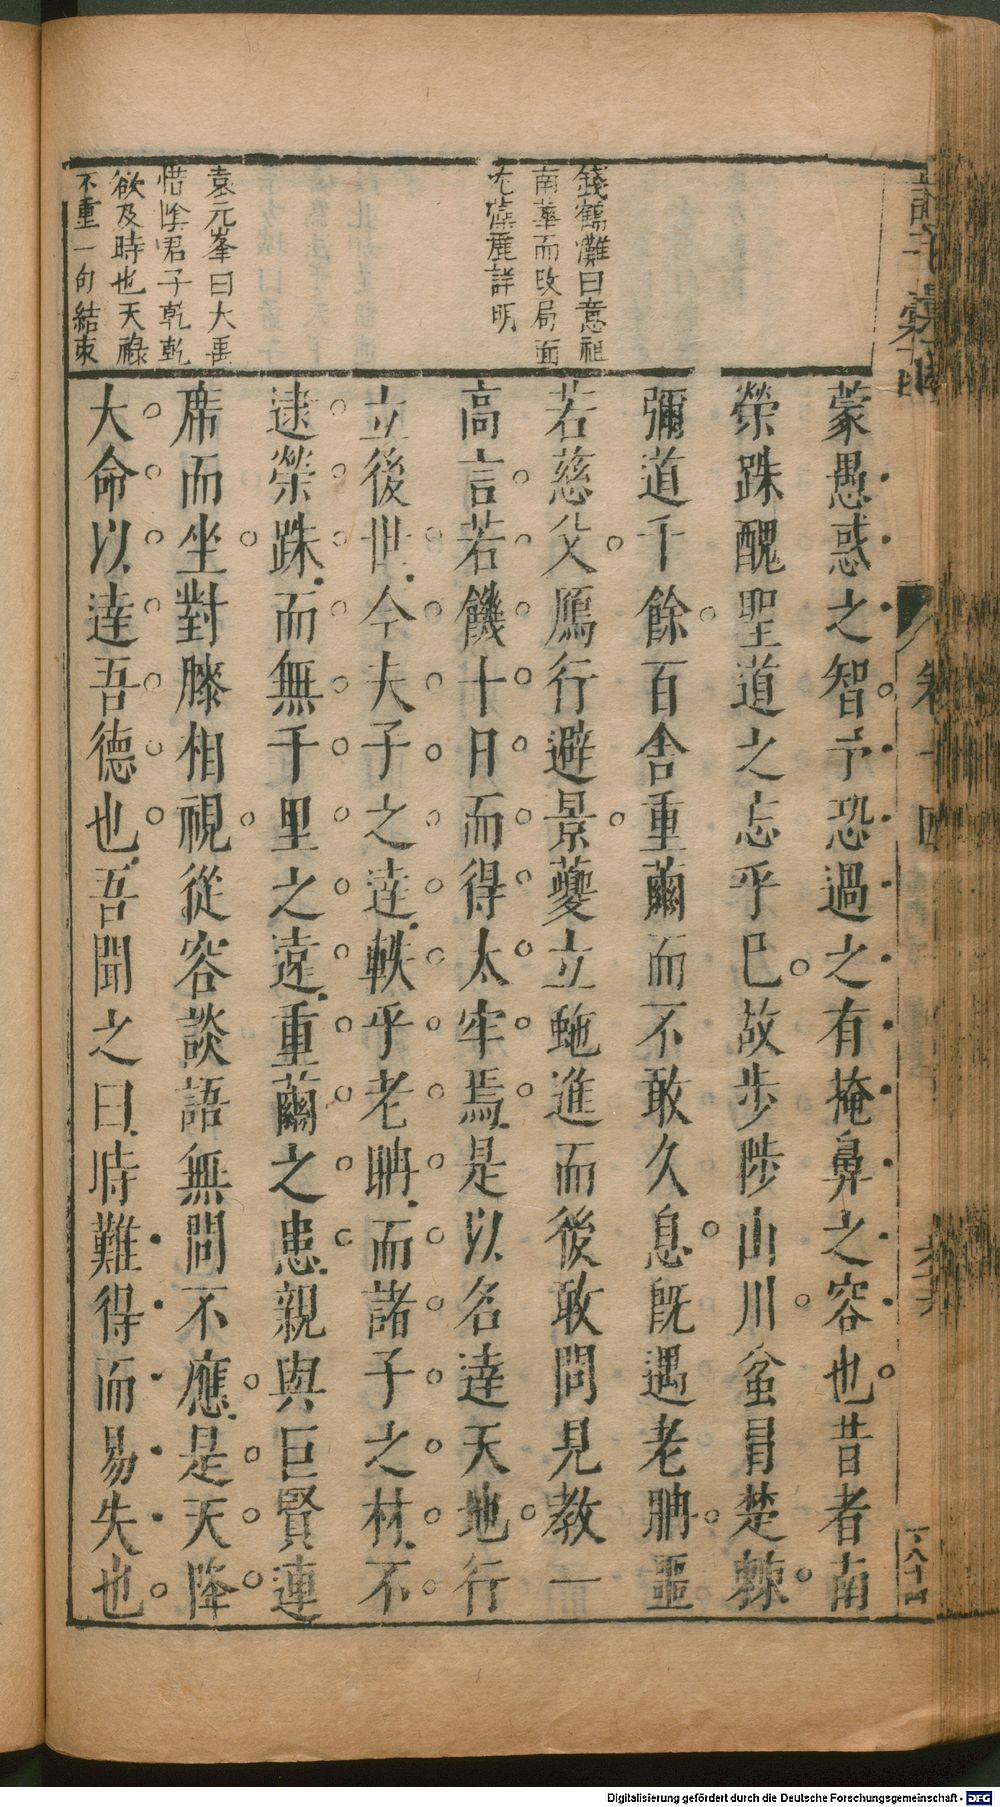 錢鶴灘曰意祖
南華而改局面
尤藻麗詳明
袁元峯曰大禹
惜陰君子乾乾
欲及時也天祿
不重一句結束
蒙愚惑之智予恐過之有掩鼻之容也昔者南
榮跦醜聖道之忘乎已故步陟山川坌冒楚棘
彌道千餘百舍重繭而不敢久息旣遇老聃噩
若慈父鴈行避景夔立虵進而後敢問見教一
高言若饑十日而得太牢焉是以名達天地行
立後世今夫子之達軼乎老聃而諸子之材不
逮榮跦而無千里之遠重繭之患親與巨賢連
席而坐對膝相視從容談語無問不應是天降
大命以達吾德也吾聞之曰時難得而易失也
卷十四
Digitalisierung gefördert durch die Deutsche Forschungsgemeinschaft - DFG